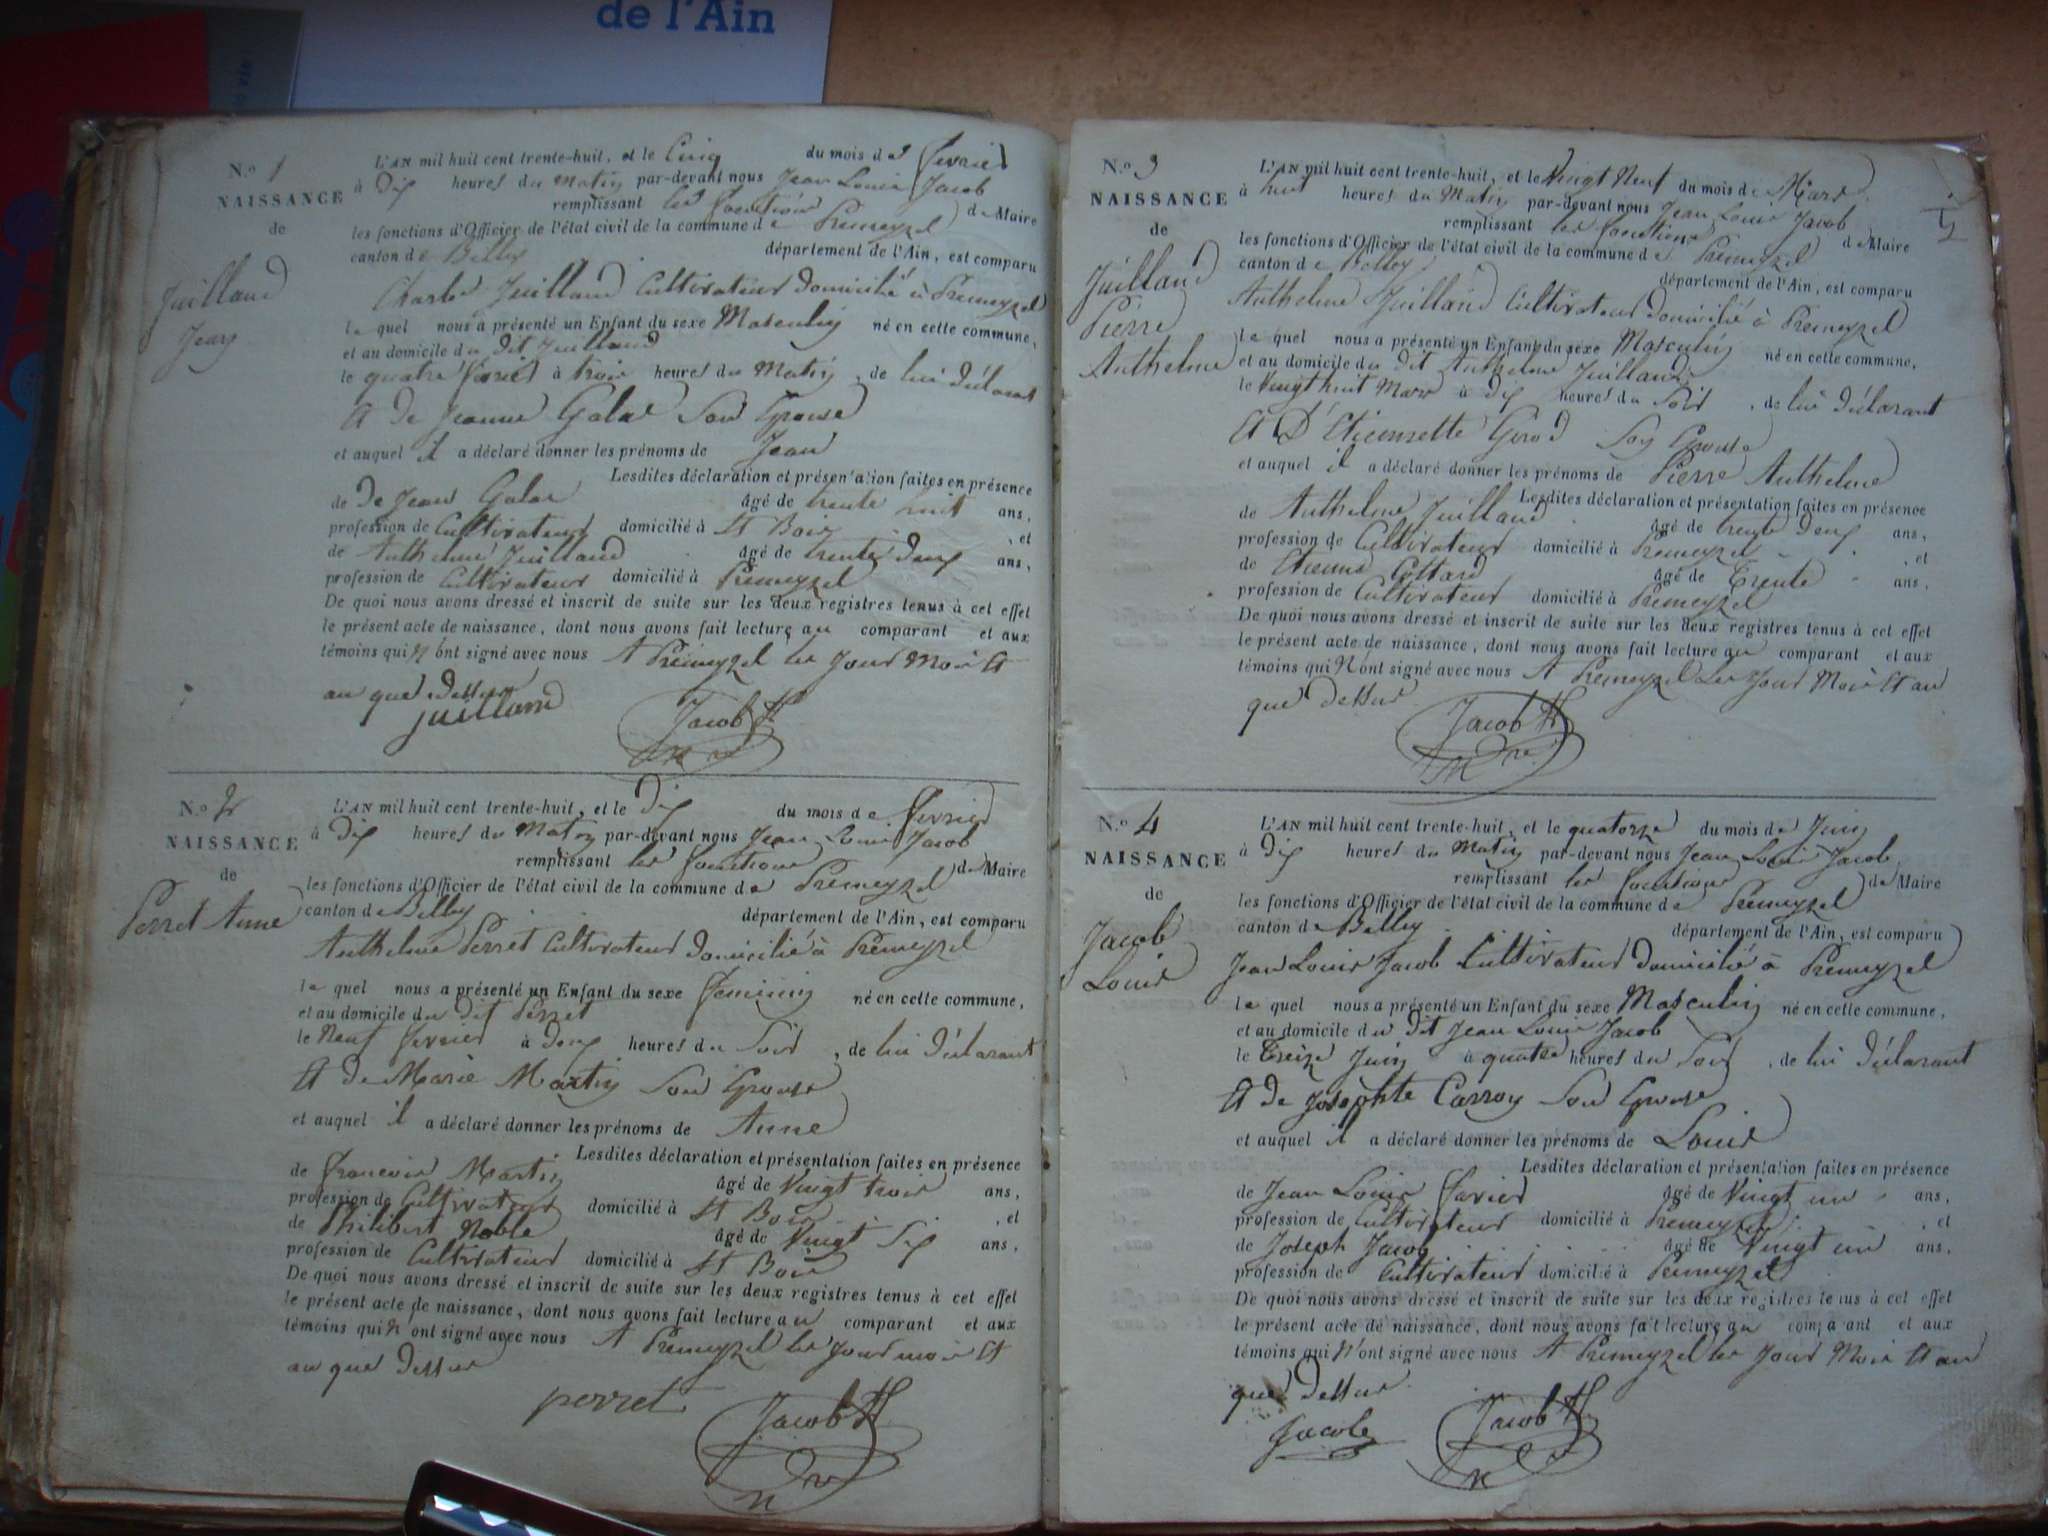 de l'Ain
N.º 1
NAISSANCE
de
Juilland
Jean
L'AN mil huit cent trente-huit, et le Cinq du mois de fevrier
à Dix heures du Matin par-devant nous Jean Louis Jacob
remplissant les fonctions de Maire
les fonctions d'Officier de l'état civil de la commune de Premeyzel
canton de Belley département de l'Ain, est comparu
Charles Juilland Cultivateur domicilié à Premeyzel
le quel nous a présenté un Enfant du sexe Masculin né en cette commune,
et au domicile du dit Juilland
le quatre fevrier à trois heures du Matin, de lui déclarant
Et de Jeanne Galae Son Epouse
et auquel il a déclaré donner les prénoms de Jean
Lesdites déclaration et présentation faites en présence
de De Jean Galae âgé de trente huit ans,
profession de Cultivateur domicilié à St Bois, et
de Anthelme Juilland âgé de trente deux ans,
profession de Cultivateur domicilié à Premeyzel
De quoi nous avons dressé et inscrit de suite sur les deux registres tenus à cet effet
le présent acte de naissance, dont nous avons fait lecture au comparant et aux
témoins qui N'ont signé avec nous A Premeyzel les Jour Mois Et
an que dessus
juilland Jacob
N.º 2
NAISSANCE
de
Perret Anne
L'AN mil huit cent trente-huit, et le Dix du mois de fevrier
à Dix heures du Matin par-devant nous Jean Louis Jacob
remplissant les fonctions de Maire
les fonctions d'Officier de l'état civil de la commune de Premeyzel
canton de Belley département de l'Ain, est comparu
Anthelme Perret Cultivateur domicilié à Premeyzel
le quel nous a présenté un Enfant du sexe feminin né en cette commune,
et au domicile du dit Perret
le Neuf fevrier à Deux heures du Soir, de lui déclarant
Et de Marie Martin Son Epouse
et auquel il a déclaré donner les prénoms de Anne
Lesdites déclaration et présentation faites en présence
de francois Martin âgé de Vingt trois ans,
profession de Cultivateur domicilié à St Bois, et
de Philibert Noble âgé de Vingt Six ans,
profession de Cultivateur domicilié à St Bois
De quoi nous avons dressé et inscrit de suite sur les deux registres tenus à cet effet
le présent acte de naissance, dont nous avons fait lecture au comparant et aux
témoins qui N'ont signé avec nous A Premeyzel les Jour mois Et
an que Dessus
perret Jacob
N.º 3
NAISSANCE
de
Juilland
Pierre
Anthelme
L'AN mil huit cent trente-huit, et le Vingt Neuf du mois de Mars
à huit heures du Matin par-devant nous Jean Louis Jacob
remplissant les fonctions de Maire
les fonctions d'Officier de l'état civil de la commune de Premeyzel
canton de Belley département de l'Ain, est comparu
Anthelme Juilland Cultivateur domicilié à Premeyzel
le quel nous a présenté un Enfant du sexe Masculin né en cette commune,
et au domicile du dit Anthelme Juilland
le Vingt huit Mars à dix heures du Soir, de lui déclarant
Et D'Etiennette Girod Son Epouse
et auquel il a déclaré donner les prénoms de Pierre Anthelme
Lesdites déclaration et présentation faites en présence
de Anthelme Juilland âgé de trente deux ans,
profession de Cultivateur domicilié à Premeyzel, et
de Etienne Cottard âgé de Trente ans,
profession de Cultivateur domicilié à Premeyzel
De quoi nous avons dressé et inscrit de suite sur les deux registres tenus à cet effet
le présent acte de naissance, dont nous avons fait lecture au comparant et aux
témoins qui N'ont signé avec nous A Premeyzel les Jour Mois Et an
que Dessus
Jacob
N.º 4
NAISSANCE
de
Jacob
Louis
L'AN mil huit cent trente-huit, et le quatorze du mois de Juin
à Dix heures du Matin par-devant nous Jean Louis Jacob
remplissant les fonctions de Maire
les fonctions d'Officier de l'état civil de la commune de Premeyzel
canton de Belley département de l'Ain, est comparu
Jean Louis Jacob Cultivateur domicilié à Premeyzel
le quel nous a présenté un Enfant du sexe Masculin né en cette commune,
et au domicile du dit Jean Louis Jacob
le Treize Juin à quatre heures du Soir, de lui déclarant
Et de Josephte Carroy Son Epouse
et auquel il a déclaré donner les prénoms de Louis
Lesdites déclaration et présentation faites en présence
de Jean Louis favier âgé de Vingt un ans,
profession de Cultivateur domicilié à Premeyzel, et
de Joseph Jacob âgé de Vingt un ans,
profession de Cultivateur domicilié à Premeyzel
De quoi nous avons dressé et inscrit de suite sur les deux registres tenus à cet effet
le présent acte de naissance, dont nous avons fait lecture au comparant et aux
témoins qui N'ont signé avec nous A Premeyzel les Jour Mois Et an
que Dessus
Jacob Jacob